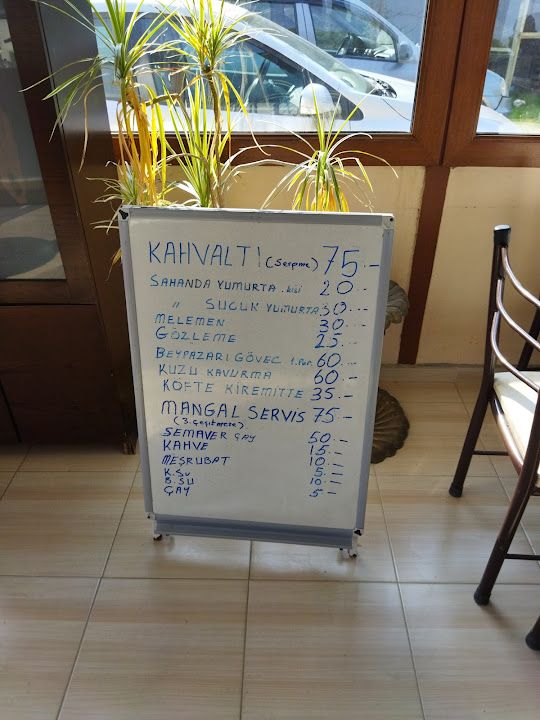 KAHVALTI (Serpme) 75.-
SAHANDA YUMURTA .kişi 20.--
" SUCUK YUMURTA 30.--
MELEMEN 30.--
GÖZLEME 25.--
BEYPAZARI GÜVEC 1.Por. 60.--
KUZU KAVURMA 60.-
KÖFTE KİREMİTTE 35.-
MANGAL SERVİS 75.-
SEMAVER ÇAY 50.-
KAHVE 15.-
MEŞRUBAT 10.-
K.SU 5.-
B.SU 10.-
ÇAY 5-